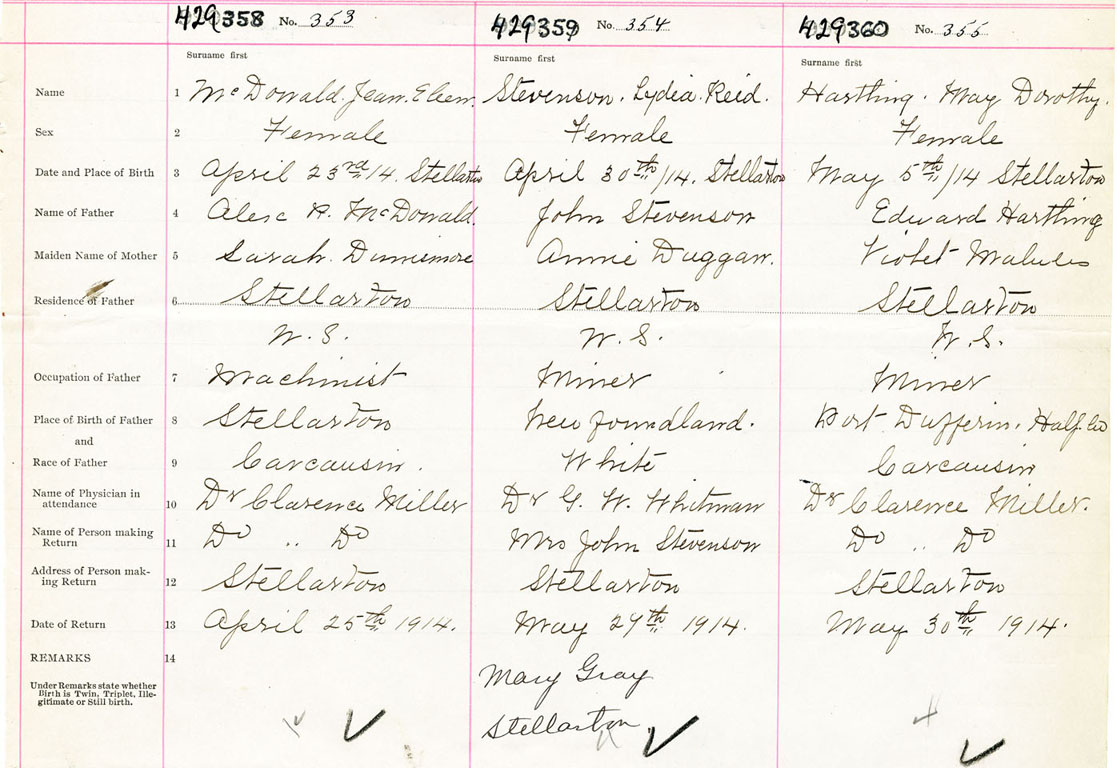 429358 No. 353 429359 No. 354 429360 No. 355
Surname first Surname first Surname first
Name 1 McDonald. Jean. Eleen. Stevenson. Lydia. Reid. Hartling. May Dorothy.
Sex 2 Female Female Female
Date and Place of Birth 3 April 23rd/14. Stellarton April 30th/14. Stellarton May 5th/14 Stellarton
Name of Father 4 McDonald. John Stevenson Edward Hartling
Maiden Name of Mother 5 Sarah. Dunsmore Annie Duggan. Violet
Residence of Father 6 Stellarton Stellarton Stellarton
N. S. N. S. N. S.
Occupation of Father 7 Machinist Miner Miner
Place of Birth of Father 8 Stellarton Newfoundland. Port Dufferin. Half. Co
and
Race of Father 9 Carcausin. White Carcausin
Name of Physician in 10 Dr Clarence Miller Dr G. W. Whitman Dr Clarence Miller.
attendance
Name of Person making 11 Do .. Do Mrs John Stevenson Do .. Do
Return
Address of Person mak- 12 Stellarton Stellarton Stellarton
ing Return
Date of Return 13 April 25th 1914. May 29th 1914. May 30th 1914.
REMARKS 14
Under Remarks state whether Mary Gray
Birth is Twin, Triplet, Ille-
gitimate or Still birth.
Stellarton